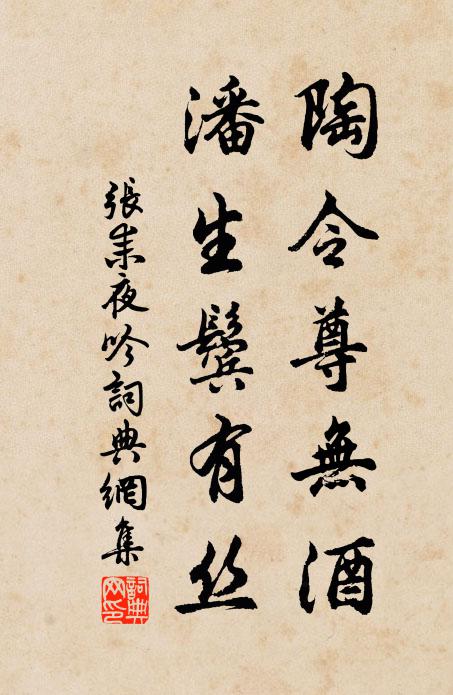 陶令尊無酒
潘生鬢有丝
張耒夜吟詞典網集
詞典網印